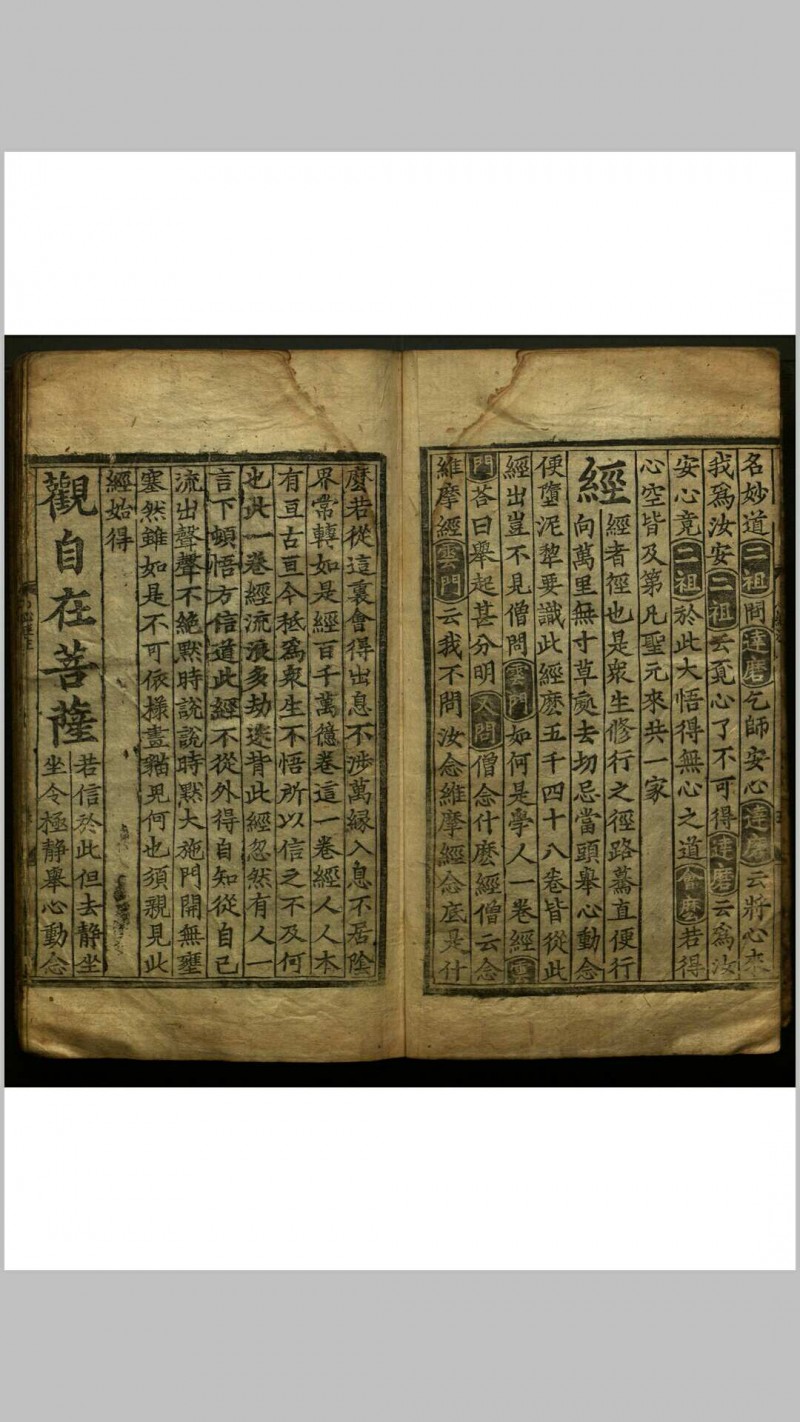 名妙道二祖問達磨乞師安心達磨云將心來
我爲汝安二祖云覓心了不可得達磨云爲汝
安心竟二祖於此大悟得無心之道達磨若得
心空皆及第凡聖元來共一家
經
經者徑也是衆生修行之徑路驀直便行
向萬里無寸草處去切忌當頭舉心動念
便墮泥犂要識此經麽五千四十八卷皆從此
經出豈不見僧問雲門如何是學人一卷經雲
門答曰舉起甚分明又問僧念什麽經僧云念
維摩經雲門云我不問汝念維摩經念底是什
麽若從這裏會得出息不涉萬緣入息不居陰
界常轉如是經百千萬億卷這一卷經人人本
有亘古亘今秪爲衆生不悟所以信之不及何
也此一卷經流浪多劫迷背此經忽然有人一
言下頓悟方信道此經不從外得自知從自己
流出聲聲不絶默時説説時默大施門開無壅
塞然雖如是不可依樣畫猫兒何也須親見此
經始得
觀自在菩薩
若信於此但去靜坐
坐令極靜舉心動念